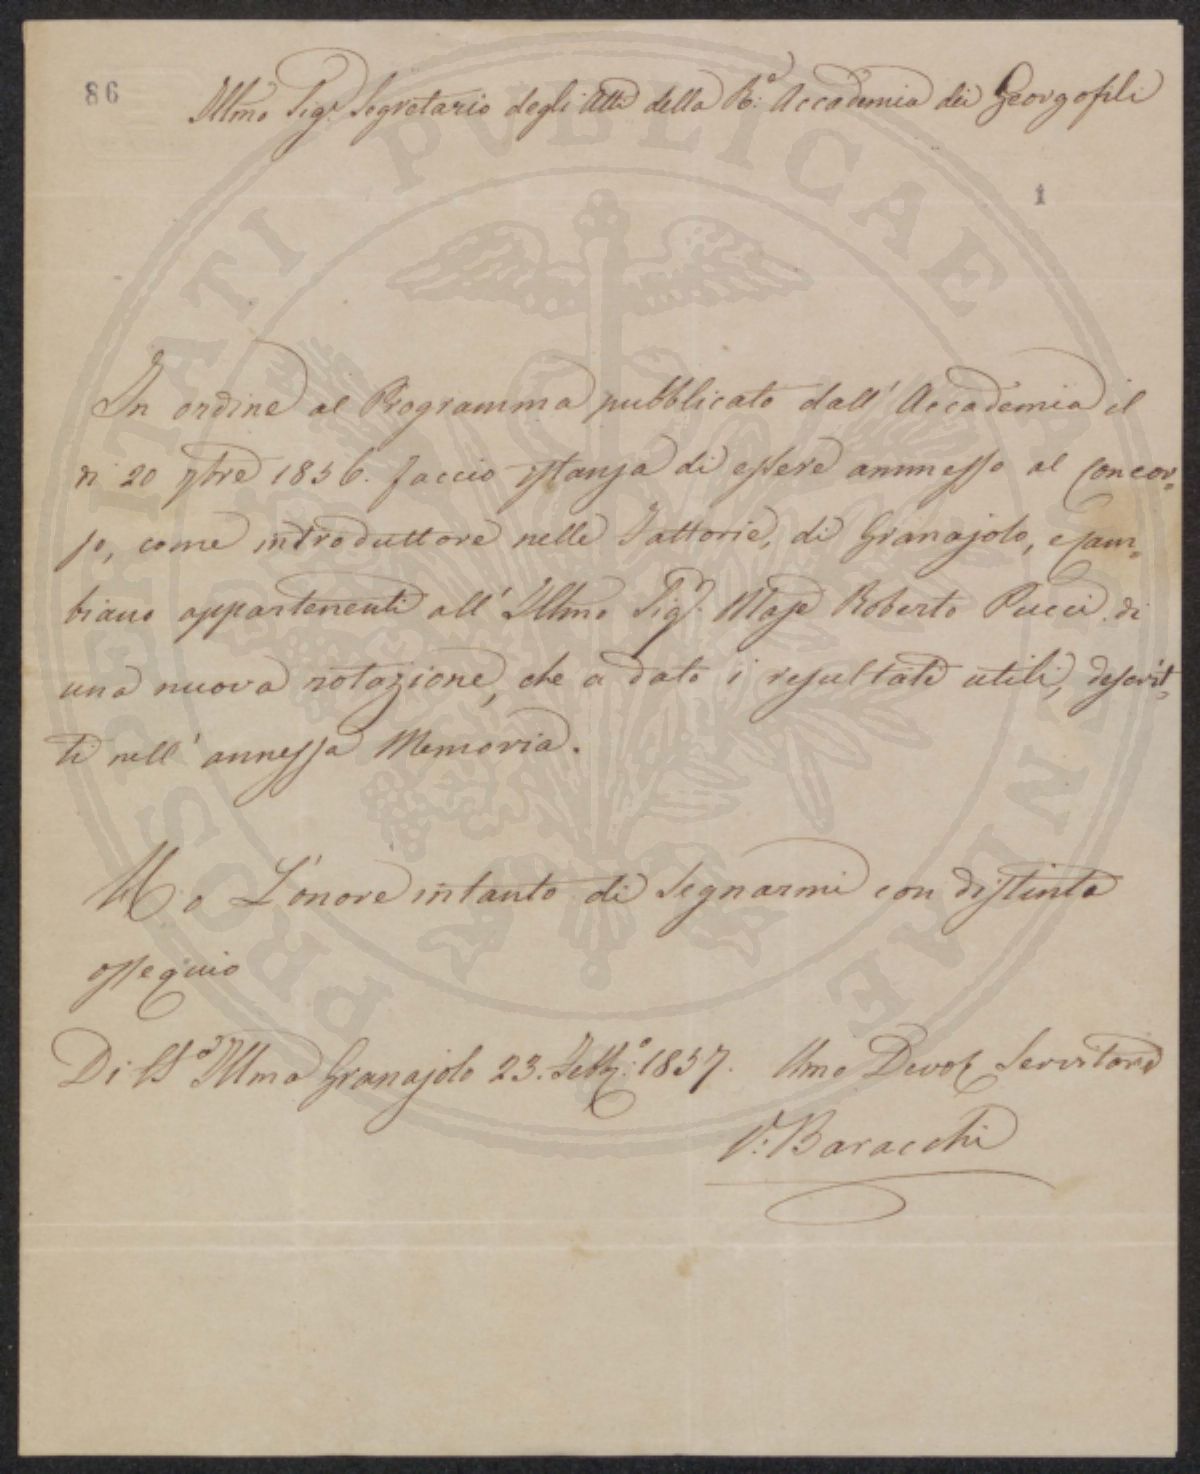 86
Illmo Sigr. Segretario degli Atti della Ra: Accademia dei Georgofili
1
In ordine al Programma pubblicato dall' Accademia il
di 20 9bre 1856. faccio istanza di essere ammesso al concor=
so, come introduttore nelle Fattorie, di Granajolo, e Cam=
biano appartenenti all' Illmo Sigr. Roberto Pucci di
una nuova rotazione, che a dato i resultati utili, descrit=
ti nell' annessa Memoria.
o L'onore intanto di Segnarmi con distinto
ossequio
Di Illma Granajolo 23. 1857. Umo Devot Servitore
V: Baracchi
PROSPERITATI PVBLICAE AVGENDAE